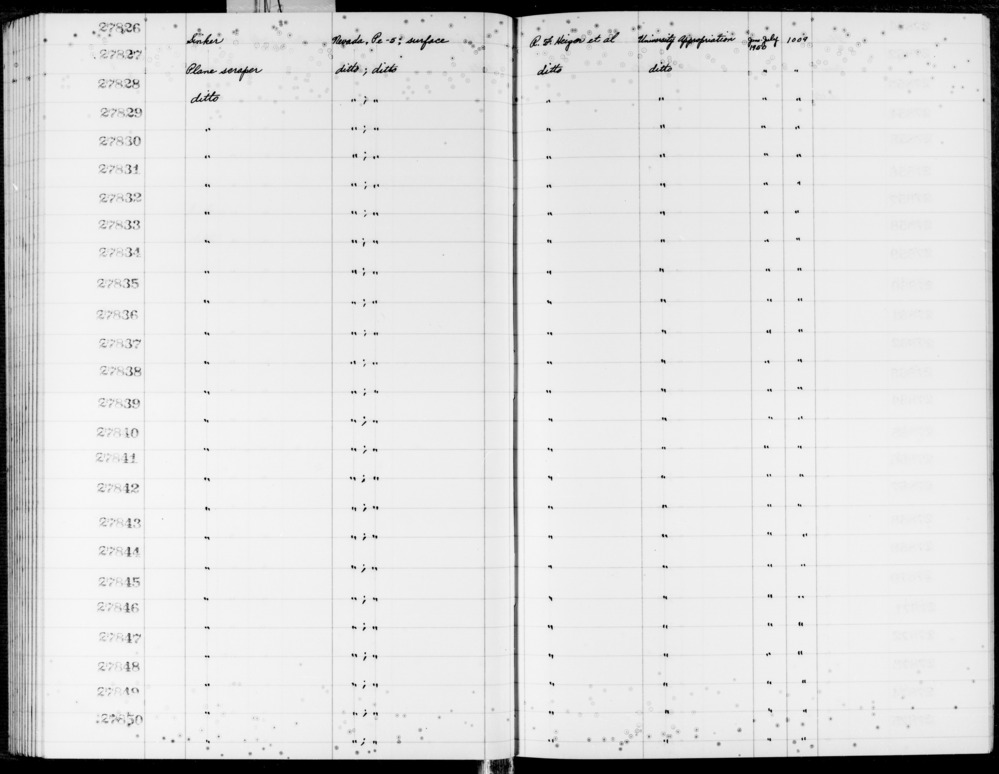 27826 Sinker Nevada, Pe-5; surface R. F. Heizer et al University Appropriation June-July 1950 1009
27827 Plane scraper ditto ; ditto ditto ditto " "
27828 ditto " ; " " " " "
27829 " " ; " " " " "
27830 " " ; " " " " "
27831 " " ; " " " " "
27832 " " ; " " " " "
27833 " " ; " " " " "
27834 " " ; " " " " "
27835 " " ; " " " " "
27836 " " ; " " " " "
27837 " " ; " " " " "
27838 " " ; " " " " "
27839 " " ; " " " " "
27840 " " ; " " " " "
27841 " " ; " " " " "
27842 " " ; " " " " "
27843 " " ; " " " " "
27844 " " ; " " " " "
27845 " " ; " " " " "
27846 " " ; " " " " "
27847 " " ; " " " " "
27848 " " ; " " " " "
27849 " " ; " " " " "
27850 " " ; " " " " "